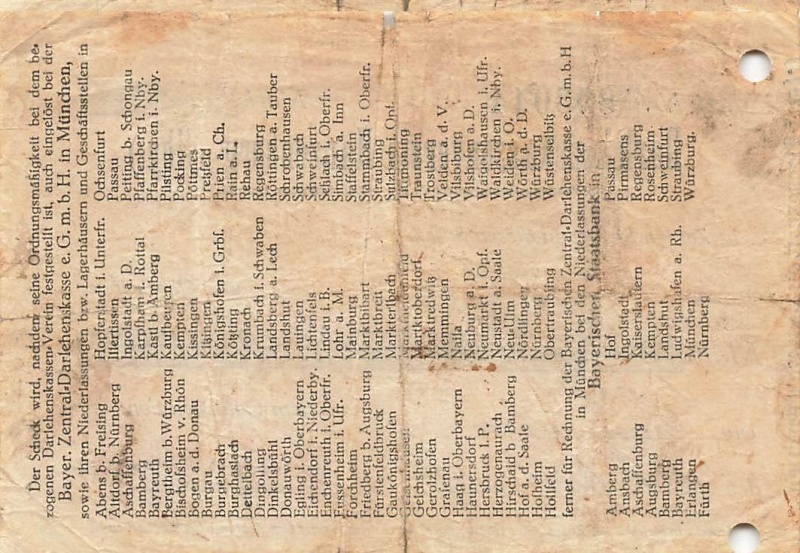 Der Scheck wird, nachdem seine Ordnungsmäßigkeit bei dem be-
zogenen Darlehenskassen-Verein festgestellt ist, auch eingelöst bei der
Bayer. Zentral-Darlehenskasse e. G. m. b. H. in München,
sowie ihren Niederlassungen bzw. Lagerhäusern und Geschäftsstellen in
Abens b. Freising
Altdorf b. Nürnberg
Aschaffenburg
Bamberg
Bayreuth
Bergtheim b. Würzburg
Bischofsheim v. Rhön
Bogen a. d. Donau
Burgau
Burgebrach
Burghaslach
Dettelbach
Dingolfing
Dinkelsbühl
Donauwörth
Egling i. Oberbayern
Eichendorf i. Niederby.
Enchenreuth i. Oberfr.
Eussenheim i. Ufr.
Forchheim
Friedberg b. Augsburg
Fürstenfeldbruck
Gaukönigshofen
Geichsheim
Gerolzhofen
Grafenau
Haag i. Oberbayern
Haunersdorf
Hersbruck l. P.
Herzogenaurach
Hirschaid b Bamberg
Hof a. d. Saale
Holheim
Hollfeld
Hopferstadt i. Unterfr.
Illertissen
Ingolstadt a. D.
Karpfham i. Rottal
Kastl b. Amberg
Kaufbeuren
Kempten
Kissingen
Kitzingen
Königshofen i. Grbf.
Kötzting
Kronach
Krumbach i. Schwaben
Landsberg a. Lech
Landshut
Lauingen
Lichtenfels
Lindau i. B.
Lohr a. M.
Mainburg
Marktbibart
Marktbreit
Markterlbach
Marktoberdorf
Marktredwitz
Memmingen
Naila
Neuburg a. D.
Neumarkt i. Opf.
Neustadt a. Saale
Neu-Ulm
Nördlingen
Nürnberg
Obertraubling
Ochsenfurt
Passau
Petting b. Schongau
Pfaffenberg i. Nby.
Pfarrkirchen i. Nby.
Pilsting
Pocking
Pöttmes
Pretzfeld
Prien a. Ch.
Rain a. L.
Rehau
Regensburg
Röttingen a. Tauber
Schrobenhausen
Schwabach
Schweinfurt
Seßlach i. Oberfr.
Simbach a. Inn
Staffelstein
Stammbach i. Oberfr.
Straubing
Sulzbach i. Opf.
Tittmoning
Traunstein
Trostberg
Velden a. d. V.
Vilsbiburg
Vilshofen a. D.
Waigolshausen i. Ufr.
Waldkirchen i. Nby.
Weiden i. O.
Wörth a. d. D.
Würzburg
Wüstenselbitz
ferner für Rechnung der Bayerischen Zentral-Darlehenskasse e. G. m. b. H
in München bei den Niederlassungen der
Bayerischen Staatsbank in
Amberg
Ansbach
Aschaffenburg
Augsburg
Bamberg
Bayreuth
Erlangen
Fürth
Hof
Ingolstadt
Kaiserslautern
Kempten
Landshut
Ludwigshafen a. Rh.
München
Nürnberg
Passau
Pirmasens
Regensburg
Rosenheim
Schweinfurt
Straubing
Würzburg.